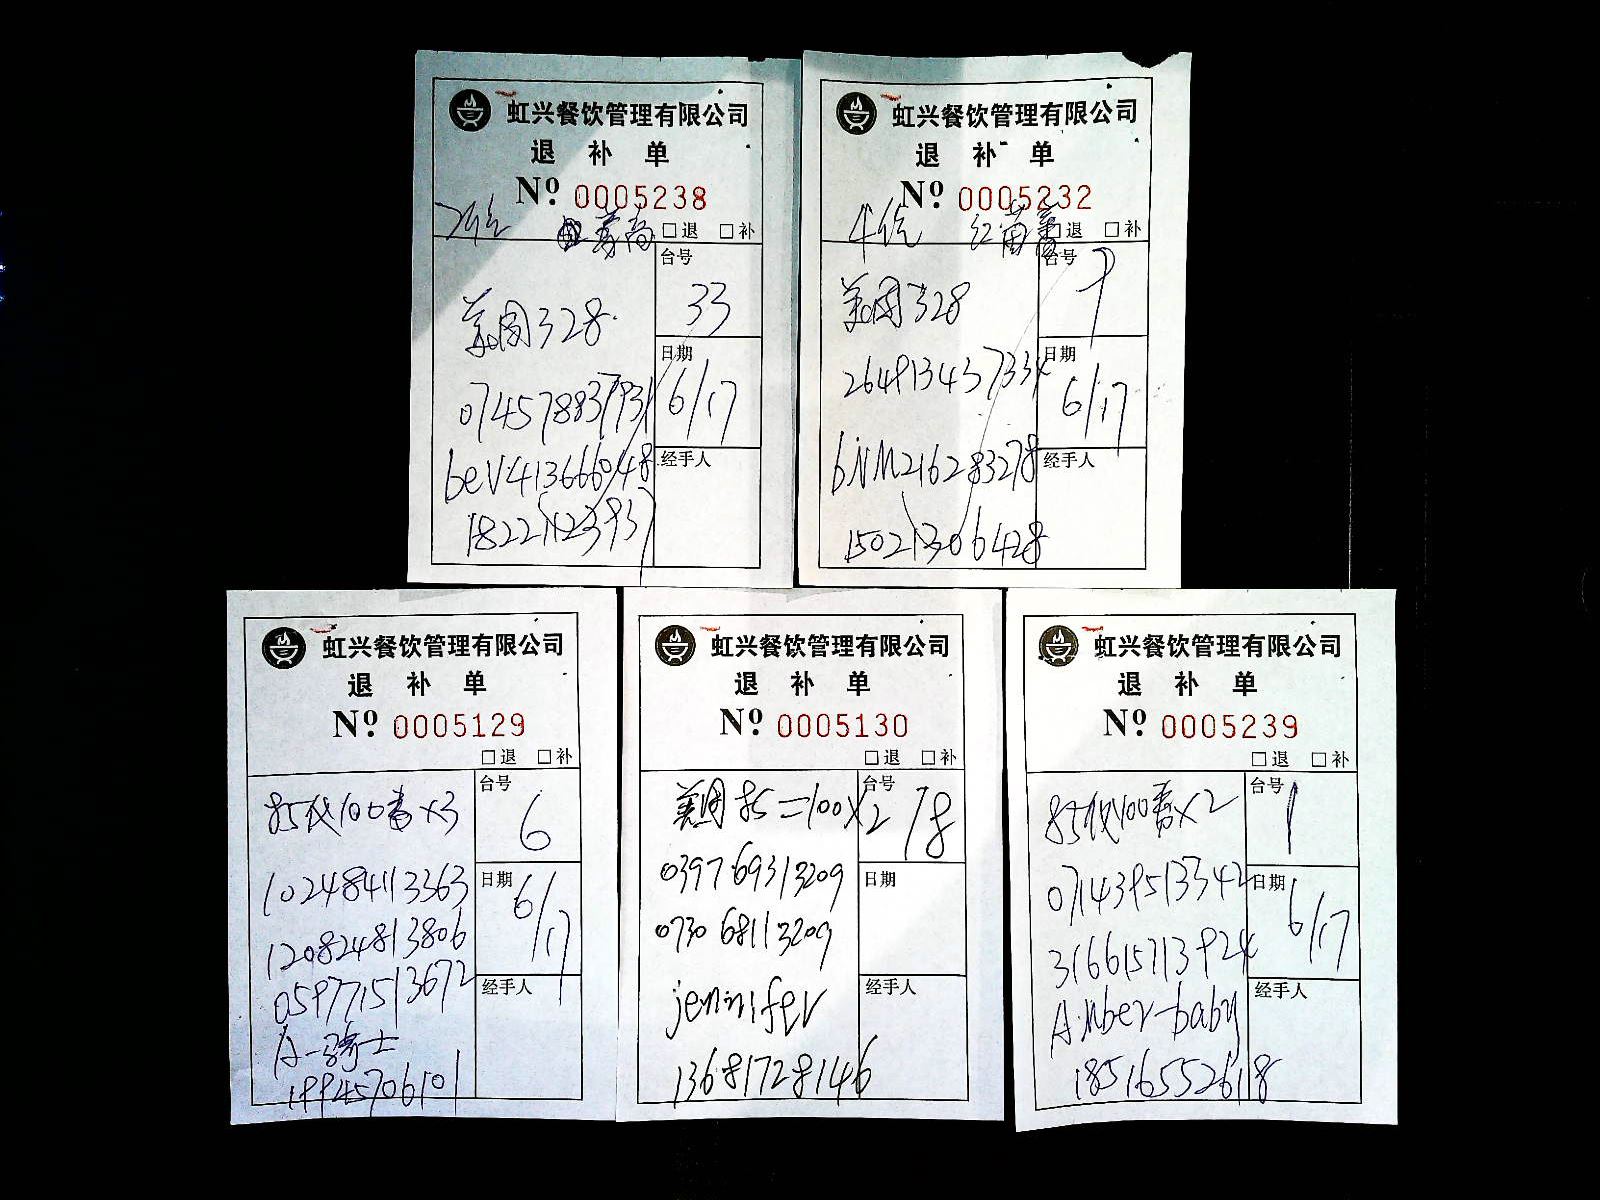 虹兴餐饮管理有限公司
退 补 单
Nº 0005238
□退 □补
台号
33
美团328
日期
6/17
074578837931
beV413666048
经手人
18221123937
虹兴餐饮管理有限公司
退 补 单
Nº 0005232
4位
□退 □补
台号
7
美团328
日期
6/17
264913437334
bNM216283278
经手人
15021306428
虹兴餐饮管理有限公司
退 补 单
Nº 0005129
□退 □补
台号
6
85代100券×3
102484113363
日期
6/17
120824813806
059771513672
经手人
A-骑士
19945706101
虹兴餐饮管理有限公司
退 补 单
Nº 0005130
□退 □补
台号
78
美团85=100×2
039769313209
日期
073068113209
经手人
jennifer
13681728146
虹兴餐饮管理有限公司
退 补 单
Nº 0005239
□退 □补
台号
1
85代100券×2
071439513342
日期
6/17
316615713924
经手人
Amber-baby
18516552618